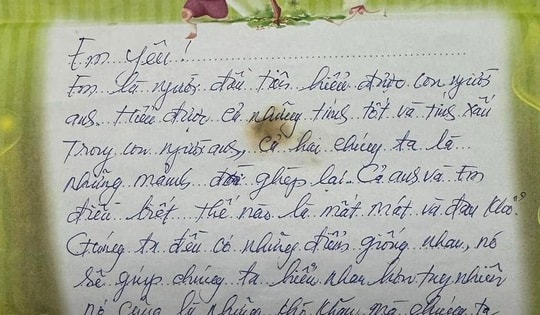 Em yêu!
Em là người đầu tiên hiểu được con người
anh. Hiểu được cả những tính tốt và tính xấu
Trong con người anh, cả hai chúng ta là
những mảnh ghép lại. Cả anh và Em
điều biết thế nào là mất mát và đau khổ.
Chúng ta đều có những điểm giống nhau, nó
sẽ giúp chúng ta hiểu nhau hơn tuy nhiên
nó cũng là những khó khăn mà chúng ta